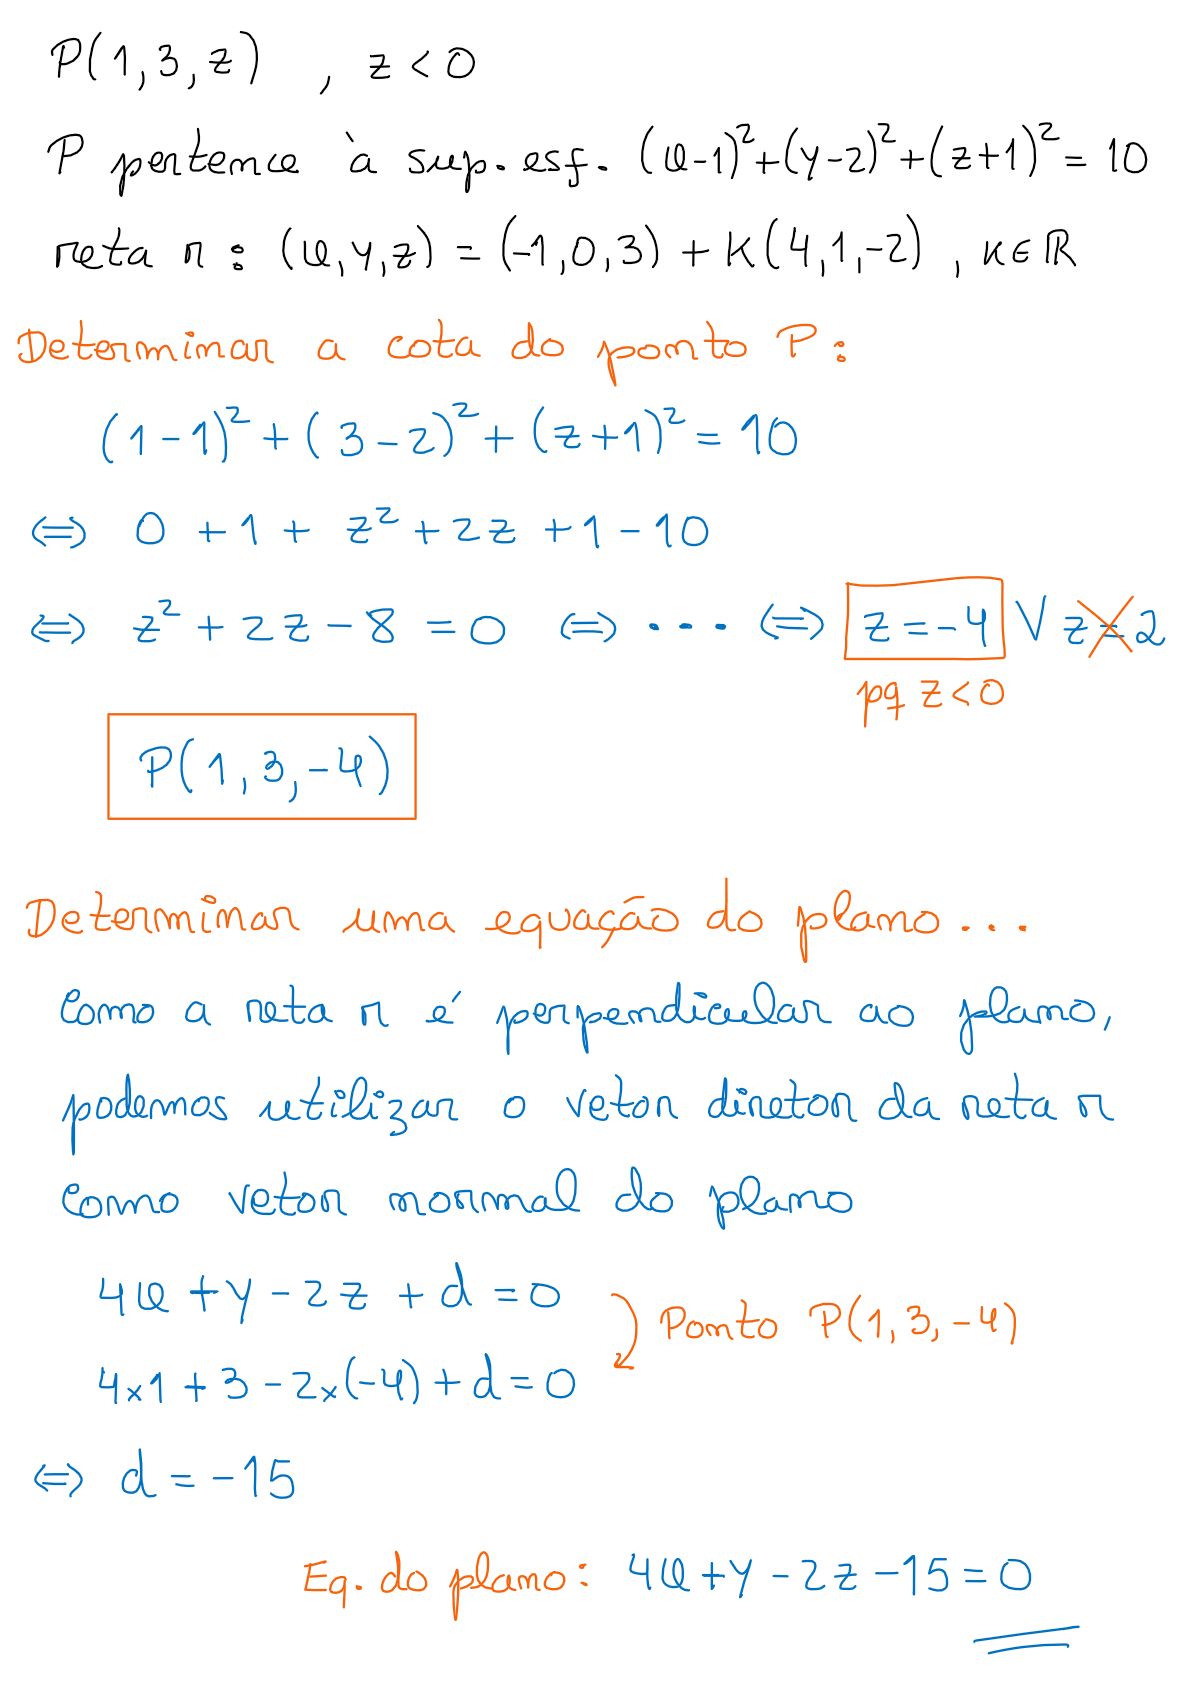 P(1,3,z) , z<0
P pertence à sup. esf. (x-1)²+(y-2)²+(z+1)²=10
reta r: (x,y,z) = (-1,0,3) + K(4,1,-2) , K∈ℝ
Determinar a cota do ponto P:
(1-1)²+(3-2)²+(z+1)²=10
⇔ 0+1+z²+2z+1-10
⇔ z²+2z-8=0 ⇔ ... ⇔ z=-4 ∨ z=2
pq z<0
P(1,3,-4)
Determinar uma equação do plano...
Como a reta r é perpendicular ao plano,
podemos utilizar o vetor diretor da reta r
como vetor normal do plano
4x+y-2z+d=0
Ponto P(1,3,-4)
4×1+3-2×(-4)+d=0
⇔ d=-15
Eq. do plano: 4x+y-2z-15=0